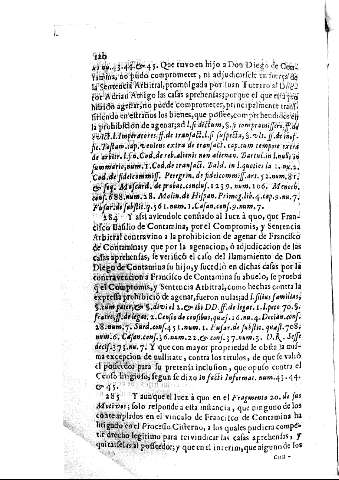 120
43. 44. & 45. Que tuvo en hijo a Don Diego de Con-
tamina, no pudo comprometer, ni adjudicarsele en fuerça de
la Sentencia Arbitral, promulgada por Juan
tor Adrian Amigo las casas aprehensas; porque el que està pro-
hibido agenar, no puede comprometer, principalmente transi-
firiendo en estraños los bienes, que posseë, comprehendidos en
la prohibicion de agenar; ad l. si dictum, §. si compromissero, ff. de
evict. l. Imperatores ff. de transact. l. si suspecta, §. vlt. ff. de inof-
fic. Testam. cap. veniens extra de transact. cap. cum tempore extra
de arbitr. l. 50. Cod. de reb. alienis non alienan. Bart. in l. vulz. in
summario, num. 1. Cod. de transact. Bald. in l. qucties la 2. nu. 2.
Cod. de fideicommiss. Peregrin. de fideicomm. art. 52. num. 81.
& seq. Mascard. de probat. concl. 1239. num. 106. Menoch.
conf. 688. num. 28. Molin. de Hispan. Primog. lib. 4. cap. 9. nu. 7.
Fusar. de substit. q. 561. num. 1. Casan. conf. 9. num. 7.
284 Y assi aviendole constado al Iuez à quo, que Fran-
cisco Basilio de Contamina, por el Compromis, y Sentencia
Arbitral contravino a la prohibicion de agenar de Francisco
de Contamina; y que por la agenacion, ò adjudicacion de las
casas aprehensas, se verificò el caso del llamamiento de Don
Diego de Contamina su hijo, y sucediò en dichas casas por la
contravencion a Francisco de Contamina su abuelo, se prueba
q̃ el Compromis, y Sentencia Arbitral, como hechas contra la
expressa prohibicion de agenar, fueron nulas; ad l. filius familias,
§. cum pater, & §. divi el 2. & ibi DD. ff. de legat. 1. l. pater 70. §.
fratre, ff. de legat. 2. Censio de censibus, quæst. 16. nu. 4. Decian. conf.
28. num. 7. Surd. conf. 451. num. 1. Fusar. de substit. quæst. 708.
num. 6. Casan. conf. 36. num. 22. & conf. 37. num. 3. D. R. Sesse
decis. 375. nu. 7. Y que con mayor propiedad le obsta la mis-
ma excepcion de nullitate, contra los titulos, de que se valiò
el posseedor para su pretensa inclusion, que opuso contra el
Censo irrisorio, segun se dixo in facto Informat. num. 43. 44.
& 45.
285 Y aunque el Iuez à quo en el Fragmento 20. de sus
Motivos; solo responde a esta instancia, que ninguno de los
contemplados en el vinculo de Francisco de Contamina ha
litigado en el Processo Cisterno, a los quales pudiera compe-
tir drecho legitimo para reivindicar las casas aprehensas, y
quitarselas al posseedor; y que en el interim, que ninguno de los